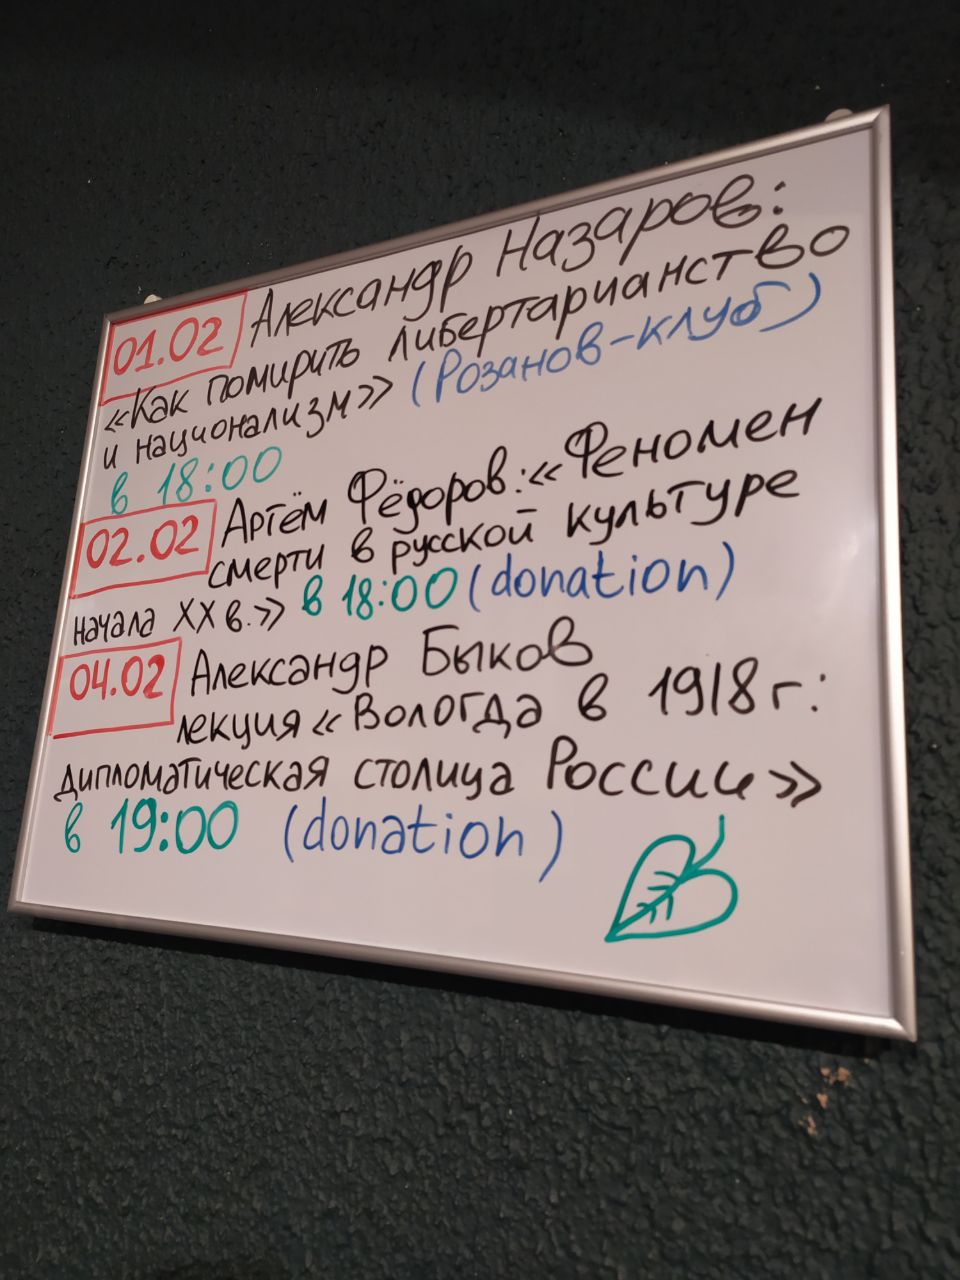 01.02 Александр Назаров:
«Как помирить либертарианство
и национализм» (Розанов-клуб)
в 18:00
02.02 Артём Фёдоров: «Феномен
смерти в русской культуре
начала XX в.» в 18:00 (donation)
04.02 Александр Быков
лекция «Вологда в 1918 г.:
дипломатическая столица России»
в 19:00 (donation)